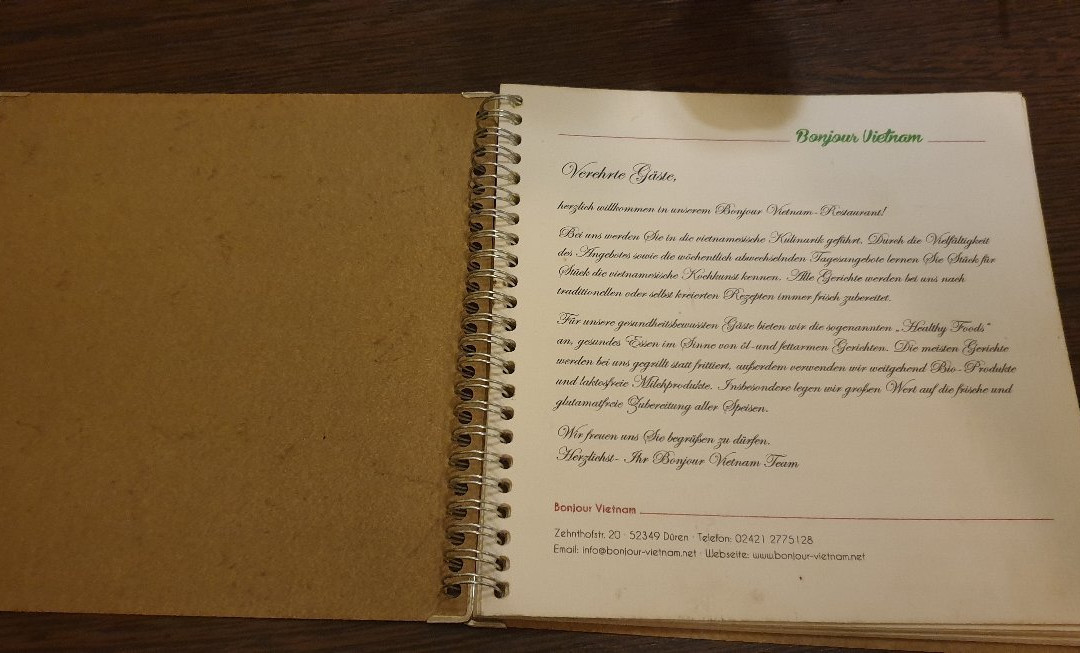 Bonjour Vietnam
Verehrte Gäste,
herzlich willkommen in unserem Bonjour Vietnam-Restaurant!
Bei uns werden Sie in die vietnamesische Kulinarik geführt. Durch die Vielfältigkeit
des Angebotes sowie die wöchentlich abwechselnden Tagesangebote lernen Sie Stück für
Stück die vietnamesische Kochkunst kennen. Alle Gerichte werden bei uns nach
traditionellen oder selbst kreierten Rezepten immer frisch zubereitet.
Für unsere gesundheitsbewussten Gäste bieten wir die sogenannten „Healthy Foods"
an, gesundes Essen im Sinne von öl-und fettarmen Gerichten. Die meisten Gerichte
werden bei uns gegrillt statt frittiert, außerdem verwenden wir weitgehend Bio-Produkte
und laktosfreie Milchprodukte. Insbesondere legen wir großen Wert auf die frische und
glutamatfreie Zubereitung aller Speisen.
Wir freuen uns Sie begrüßen zu dürfen.
Herzlichst- Ihr Bonjour Vietnam Team
Bonjour Vietnam
Zehnthofstr. 20 · 52349 Düren · Telefon: 02421 2775128
Email: info@bonjour-vietnam.net · Webseite: www.bonjour-vietnam.net